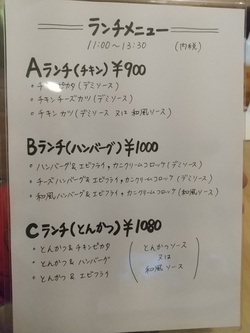 ランチメニュー
11:00～13:30 (内税)
Aランチ(チキン)¥900
・チキンピカタ(デミソース)
・チキンチーズカツ(デミソース)
・チキンカツ(デミソース 又は 和風ソース)
Bランチ(ハンバーグ)¥1000
・ハンバーグ&エビフライorカニクリームコロッケ(デミソース)
・チーズハンバーグ&エビフライorカニクリームコロッケ(デミソース)
・和風ハンバーグ&エビフライorカニクリームコロッケ(和風ソース)
Cランチ(とんかつ)¥1080
・とんかつ&チキンピカタ
・とんかつ&ハンバーグ
・とんかつ&エビフライ
(とんかつソース
又は
和風ソース)